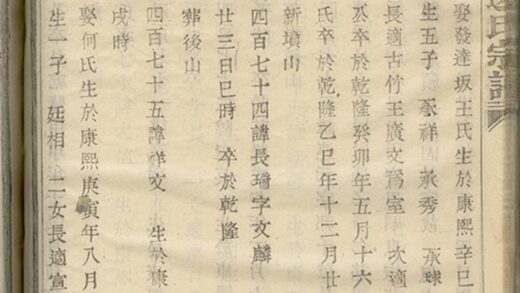 氏宗譜
娶發達坂王氏生於康熙辛巳
生五子 承祥 承秀 承球
長適古竹王廣文爲室 次適
公卒於乾隆癸卯年五月十六
氏卒於乾隆乙巳年十二月廿
新墳山
四百七十四諱長瑨字文麟
廿三日巳時 卒於乾隆
葬後山
四百七十五諱祥文 生於康
戌時
娶何氏生於康熙庚寅年八月
生一子 廷相 二女長適宣